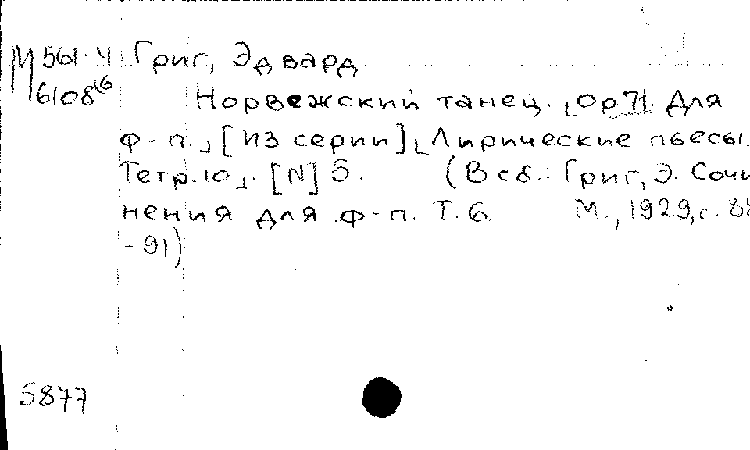 М 561-4 Григ, Эдвард
6108 Норвежский танец. ⌊ор71. Для
ф-п.⌋ [Из серии] ⌊Лирические пьесы.
Тетр.10⌋. [N] 5. (В сб.: Григ, Э. Сочи
нения для ф-п. Т. 6. М., 1929, с. 88
-91)
5877